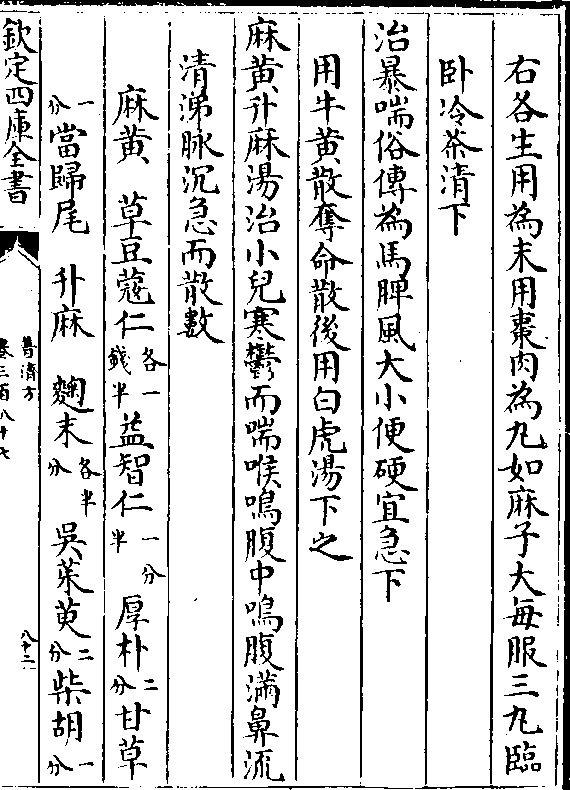 右各生用為末用棗肉為丸如麻子大每服三丸臨
卧冷茶清下
治暴喘俗傳為馬脾風大小便硬宜急下
用牛黄散奪命散後用白虎湯下之
麻黄升麻湯治小兒寒鬱而喘喉鳴腹中鳴腹滿鼻流
清涕脉沉急而散數
麻黄 草豆蔻仁各一錢半 益智仁一分半 厚朴二分 甘草
一分 當歸尾 升麻 麴末各半分 吳茱萸二分 柴胡一分
欽定四庫全書
普濟方
卷三百八十七
八十二